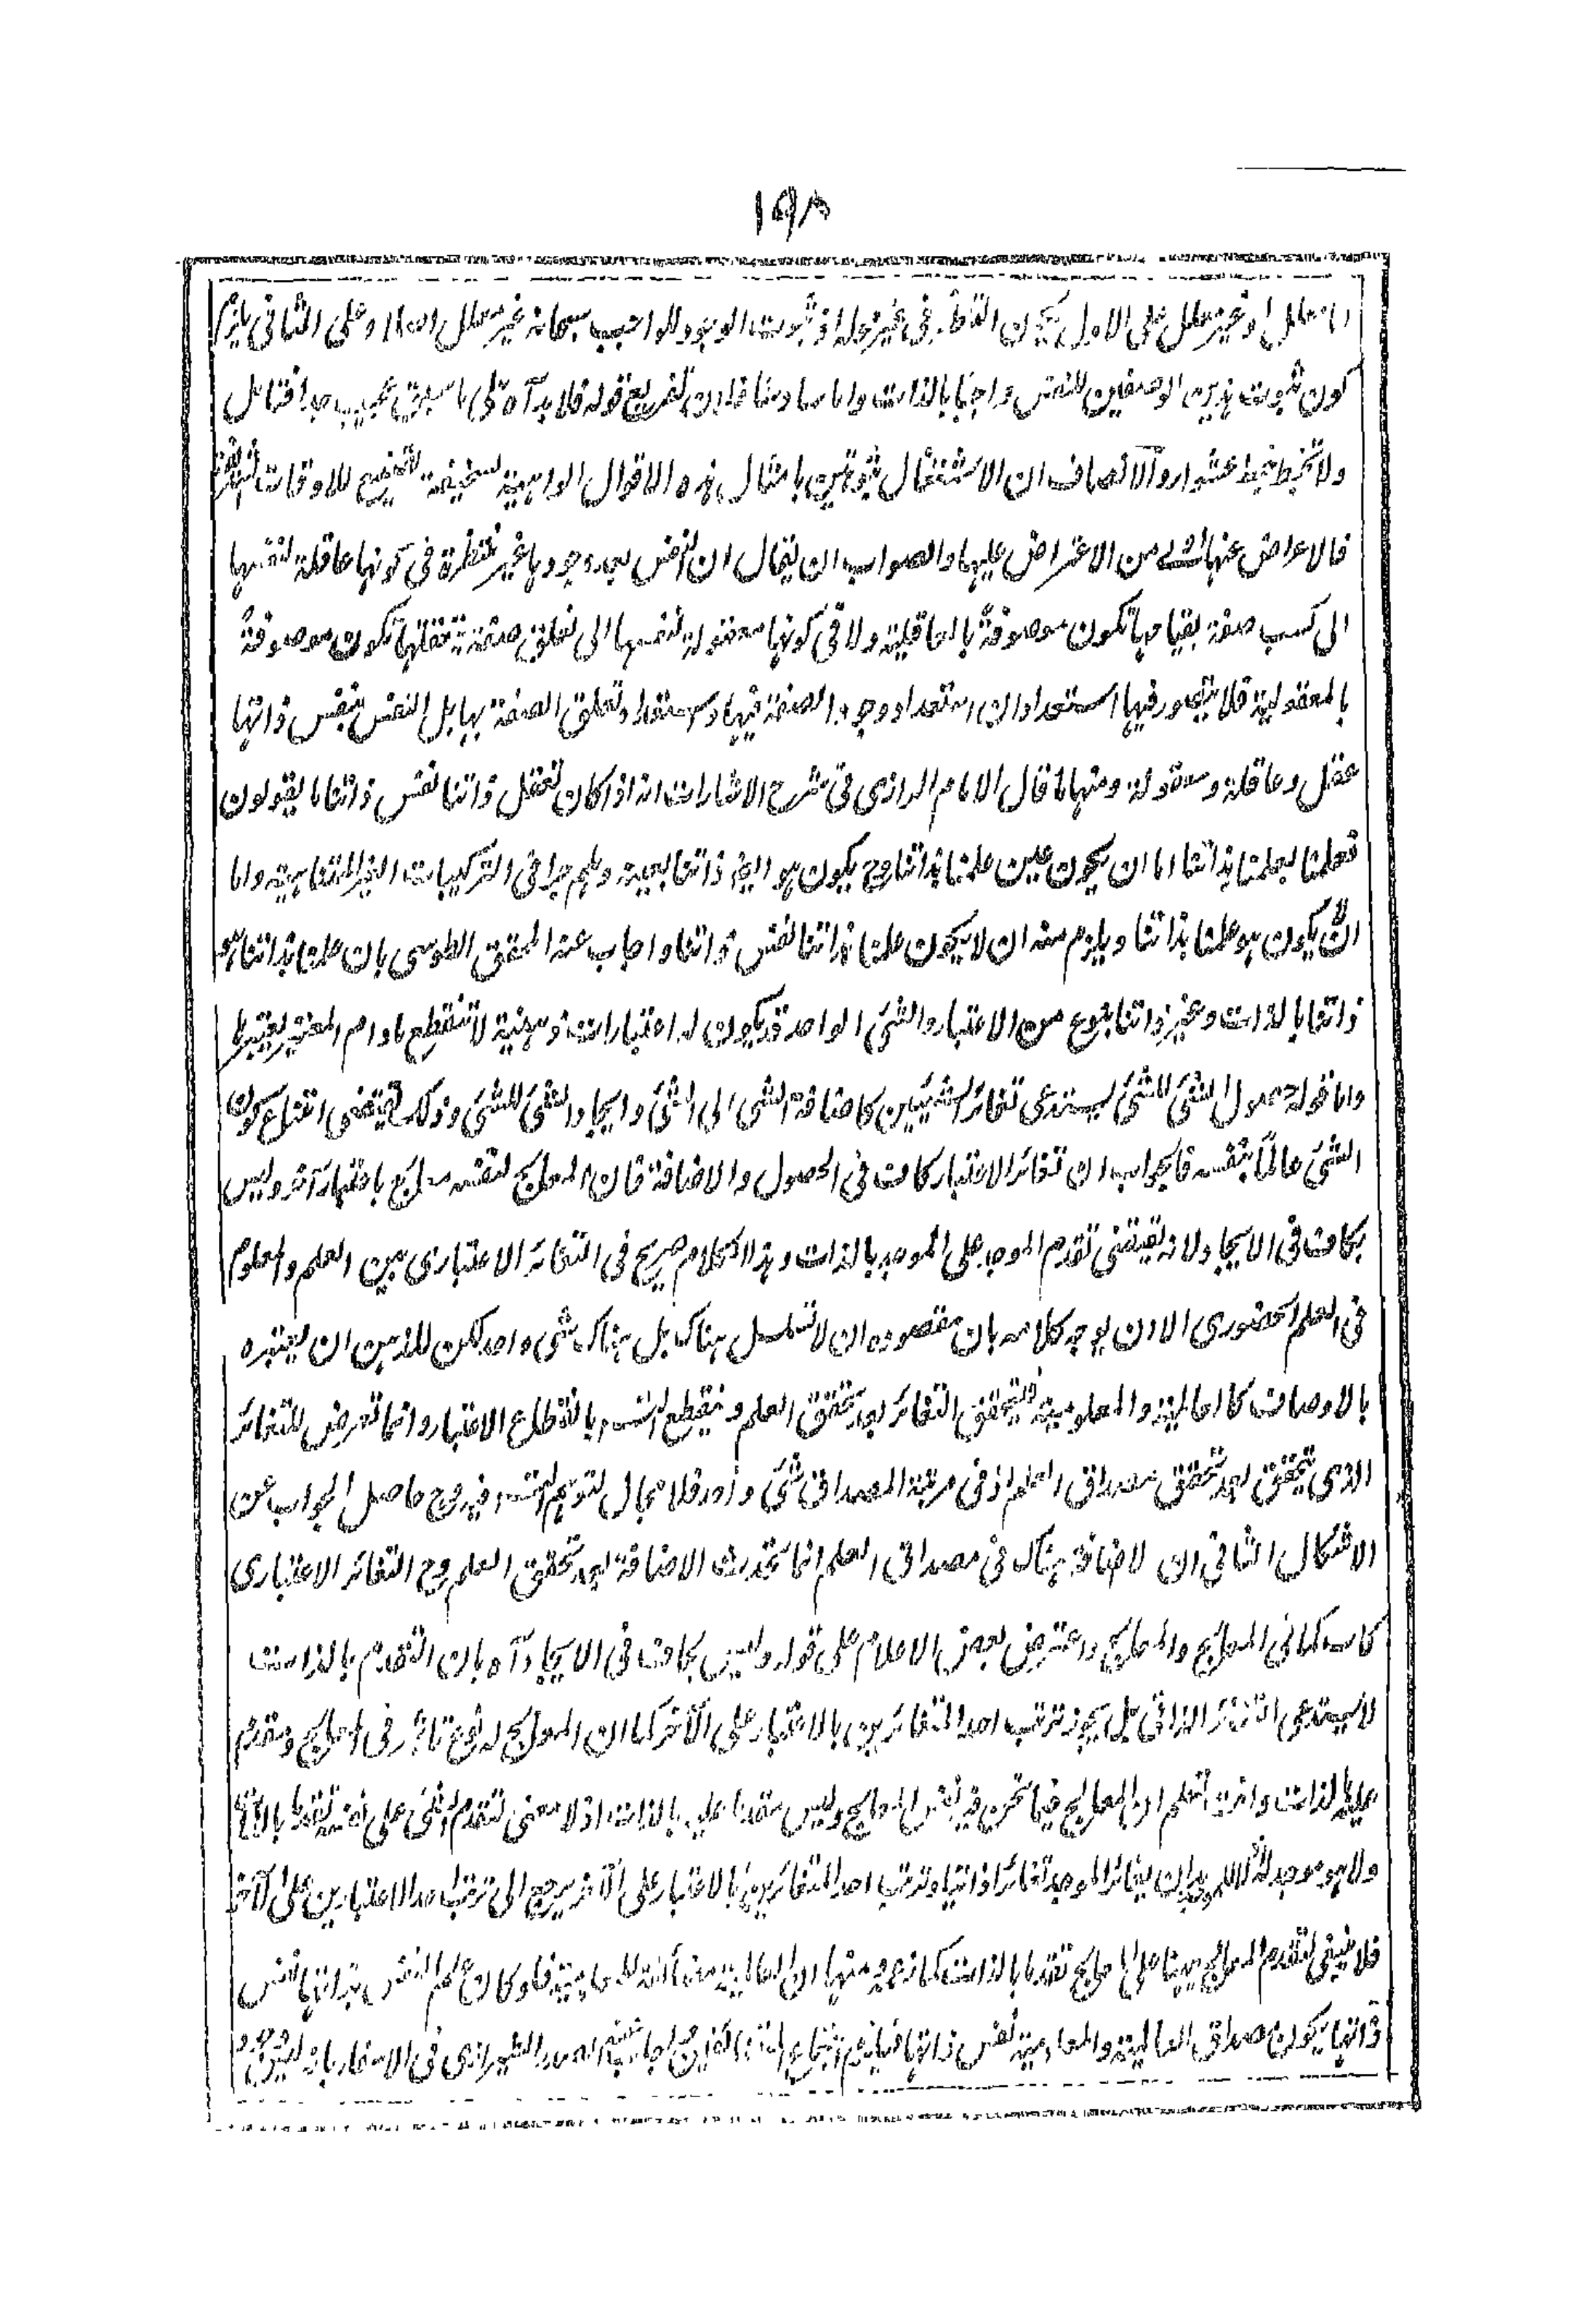 ١٩٨
معلل او غير معلل على الاول يكون النقض في غير محله اذ ثبوت الوجود للواجب سبحانه غير معلل اصلا وعلى الثاني يلزم
كون ثبوت هذين الوصفين للنفس واجبا بالذات واما سادسا فلان تفريع قوله فلا بد آه على ما سبق عجيب جدا فتامل
ولا تخبط خبط عشواء والانصاف ان الاشتغال بامثال هذه الاقوال الواهية السخيفة تضييع للاوقات
فالاعراض عنها من الاعتراض عليها والصواب ان يقال ان النفس بعد وجودها غير منتظرة في كونها عاقلة لنفسها
الى كسب صفة بقيامها تكون موصوفة بالعاقلية ولا في كونها معقولة لنفسها الى تعلق صفة تعقلها تكون موصوفة
بالمعقولية فلا يتصور فيها استعدادان استعداد وجود الصفة فيها واستعداد تعلق الصفة بها بل النفس بنفس ذاتها
عقل وعاقلة ومعقولة ومنها ما قال الامام الرازي في شرح الاشارات انه اذا كان تعقل ذاتنا نفس ذاتنا ما يقولون
فعلمنا بعلمنا بذاتنا اما ان يكون عين علمنا بذاتنا وح يكون هو ايضا ذاتنا بعينه وهلم جرا في التركيبات الغير المتناهية واما
ان لا يكون هو علمنا بذاتنا ويلزم منه ان لا يكون علمنا بذاتنا نفس ذاتنا واجاب عنه المحقق الطوسي بان علمنا بذاتنا هو
ذاتنا بالذات وغير ذاتنا بنوع من الاعتبار والشئ الواحد قد يكون له اعتبارات ذهنية لا تنقطع ما دام المعتبر يعتبرها
واما قوله حصول الشئ للشئ يستدعي تغائر الشيئين كاضافة الشئ الى الشئ وايجاد الشئ للشئ وذلك يقتضي امتناع كون
الشئ عالما بنفسه فالجواب ان تغائر الاعتبار كاف في الحصول والاضافة فان المعالج لنفسه معالج باعتبار آخر وليس
بكاف في الايجاد لانه يقتضي تقدم الموجد على الموجد بالذات وهذا الكلام صريح في التغائر الاعتباري بين العلم والمعلوم
في العلم الحضوري الا ان يوجه كلامه بان مقصوده ان لا تسلسل هناك بل هناك شئ واحد لكن للذهن ان يعتبره
بالاوصاف كالعالمية والمعلومية فيتحقق التغائر بعد تحقق العلم وينقطع التسلسل بانقطاع الاعتبار وانما تعرض للتغائر
الذي يتحقق بعد تحقق مصداق العلم اذ في مرتبة المصداق شئ واحد فلا مجال لتوهم التسلسل فيه وح حاصل الجواب عن
الاشكال الثاني ان لا اضافة هناك في مصداق العلم انما تحدث الاضافة بعد تحقق العلم وح التغائر الاعتباري
كاف كما في المعالج والمعالج واعترض بعض الاعلام على قوله وليس بكاف في الايجاد آه بان التقدم بالذات
لا يستدعي التغائر الذاتي بل يجوز ترتب احد المتغائرين بالاعتبار على الآخر كما ان المعالج له نوع تاثير في المعالج ومقدم
عليه بالذات وانت تعلم ان المعالج فيما نحن فيه نفس المعالج وليس مقدما عليه بالذات اذ لا معنى لتقدم الشئ على نفسه تقدما بالذات
ولا هو موجد له بد ان يغائر الموجد تغائرا ذاتيا وترتب احد المتغائرين بالاعتبار على الآخر يرجع الى ترتب احد الاعتبارين على الآخر
فلا ينبغي لتقدم المعالج ههنا على المعالج تقدما بالذات كما زعمه ومنها ان العالمية مضائفة للمعلومية فلو كان علم النفس بذاتها نفس
ذاتها يكون مصداق العالمية والمعلومية نفس ذاتها فيلزم اجتماع المتقابلين اجاب عنه الصدر الشيرازي في الاسفار بانه ليس